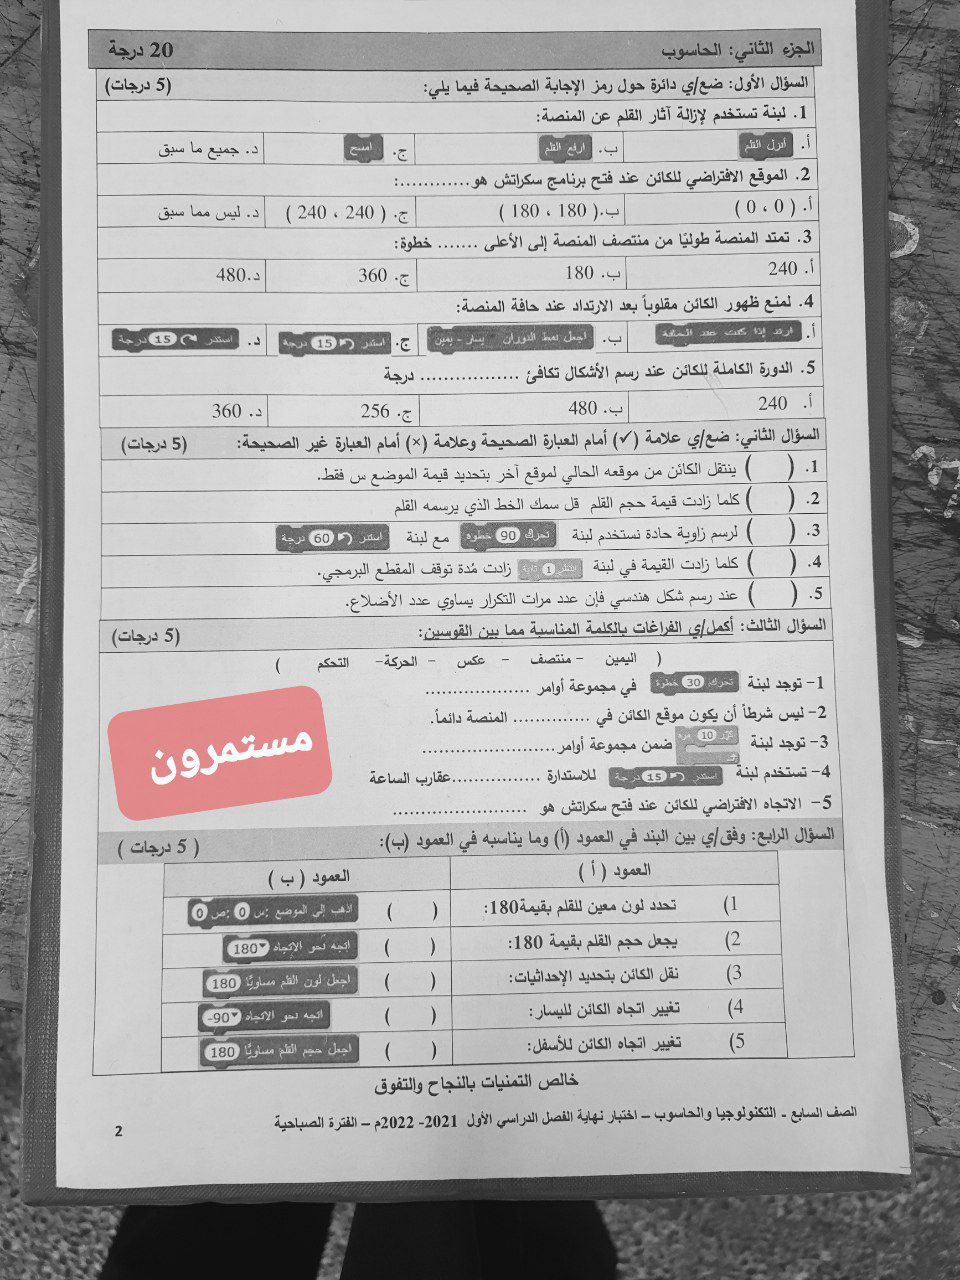 الجزء الثاني: الحاسوب 20 درجة
السؤال الأول: ضع/ي دائرة حول رمز الإجابة الصحيحة فيما يلي: (5 درجات)
1. لبنة تستخدم لإزالة آثار القلم عن المنصة:
أ. أنزل القلم ب. ارفع القلم ج. امسح د. جميع ما سبق
2. الموقع الافتراضي للكائن عند فتح برنامج سكراتش هو............:
أ. ( 0 ، 0 ) ب.( 180 ، 180 ) ج. ( 240 ، 240 ) د. ليس مما سبق
3. تمتد المنصة طوليًا من منتصف المنصة إلى الأعلى ....... خطوة:
أ. 240 ب. 180 ج. 360 د.480
4. لمنع ظهور الكائن مقلوباً بعد الارتداد عند حافة المنصة:
أ. ارتد إذا كنت عند الحافة ب. اجعل نمط الدوران يسار - يمين ج. استدر 15 درجة د. استدر 15 درجة
5. الدورة الكاملة للكائن عند رسم الأشكال تكافئ ................. درجة
أ. 240 ب. 480 ج. 256 د. 360
السؤال الثاني: ضع/ي علامة (✓) أمام العبارة الصحيحة وعلامة (×) أمام العبارة غير الصحيحة: (5 درجات)
1. ( ) ينتقل الكائن من موقعه الحالي لموقع آخر بتحديد قيمة الموضع س فقط.
2. ( ) كلما زادت قيمة حجم القلم قل سمك الخط الذي يرسمه القلم
3. ( ) لرسم زاوية حادة نستخدم لبنة تحرك 90 خطوة مع لبنة استدر 60 درجة
4. ( ) كلما زادت القيمة في لبنة انتظر 1 ثانية زادت مُدة توقف المقطع البرمجي.
5. ( ) عند رسم شكل هندسي فإن عدد مرات التكرار يساوي عدد الأضلاع.
السؤال الثالث: أكمل/ي الفراغات بالكلمة المناسبة مما بين القوسين: (5 درجات)
( اليمين - منتصف - عكس - الحركة- التحكم )
1- توجد لبنة تحرك 30 خطوة في مجموعة أوامر ...................
2- ليس شرطاً أن يكون موقع الكائن في .............. المنصة دائماً.
3- توجد لبنة كرر 10 مرة ضمن مجموعة أوامر........................
4- تستخدم لبنة استدر 15 درجة للاستدارة ................عقارب الساعة
5- الاتجاه الافتراضي للكائن عند فتح سكراتش هو ........................
مستمرون
السؤال الرابع: وفق/ي بين البند في العمود (أ) وما يناسبه في العمود (ب): ( 5 درجات )
العمود ( أ ) العمود ( ب )
1) تحدد لون معين للقلم بقيمة180: ( ) اذهب إلى الموضع س: 0 ص: 0
2) يجعل حجم القلم بقيمة 180: ( ) اتجه نحو الاتجاه 180
3) نقل الكائن بتحديد الإحداثيات: ( ) اجعل لون القلم مساويًا 180
4) تغيير اتجاه الكائن لليسار: ( ) اتجه نحو الاتجاه -90
5) تغيير اتجاه الكائن للأسفل: ( ) اجعل حجم القلم مساويًا 180
خالص التمنيات بالنجاح والتفوق
الصف السابع - التكنولوجيا والحاسوب – اختبار نهاية الفصل الدراسي الأول 2021- 2022م – الفترة الصباحية
2